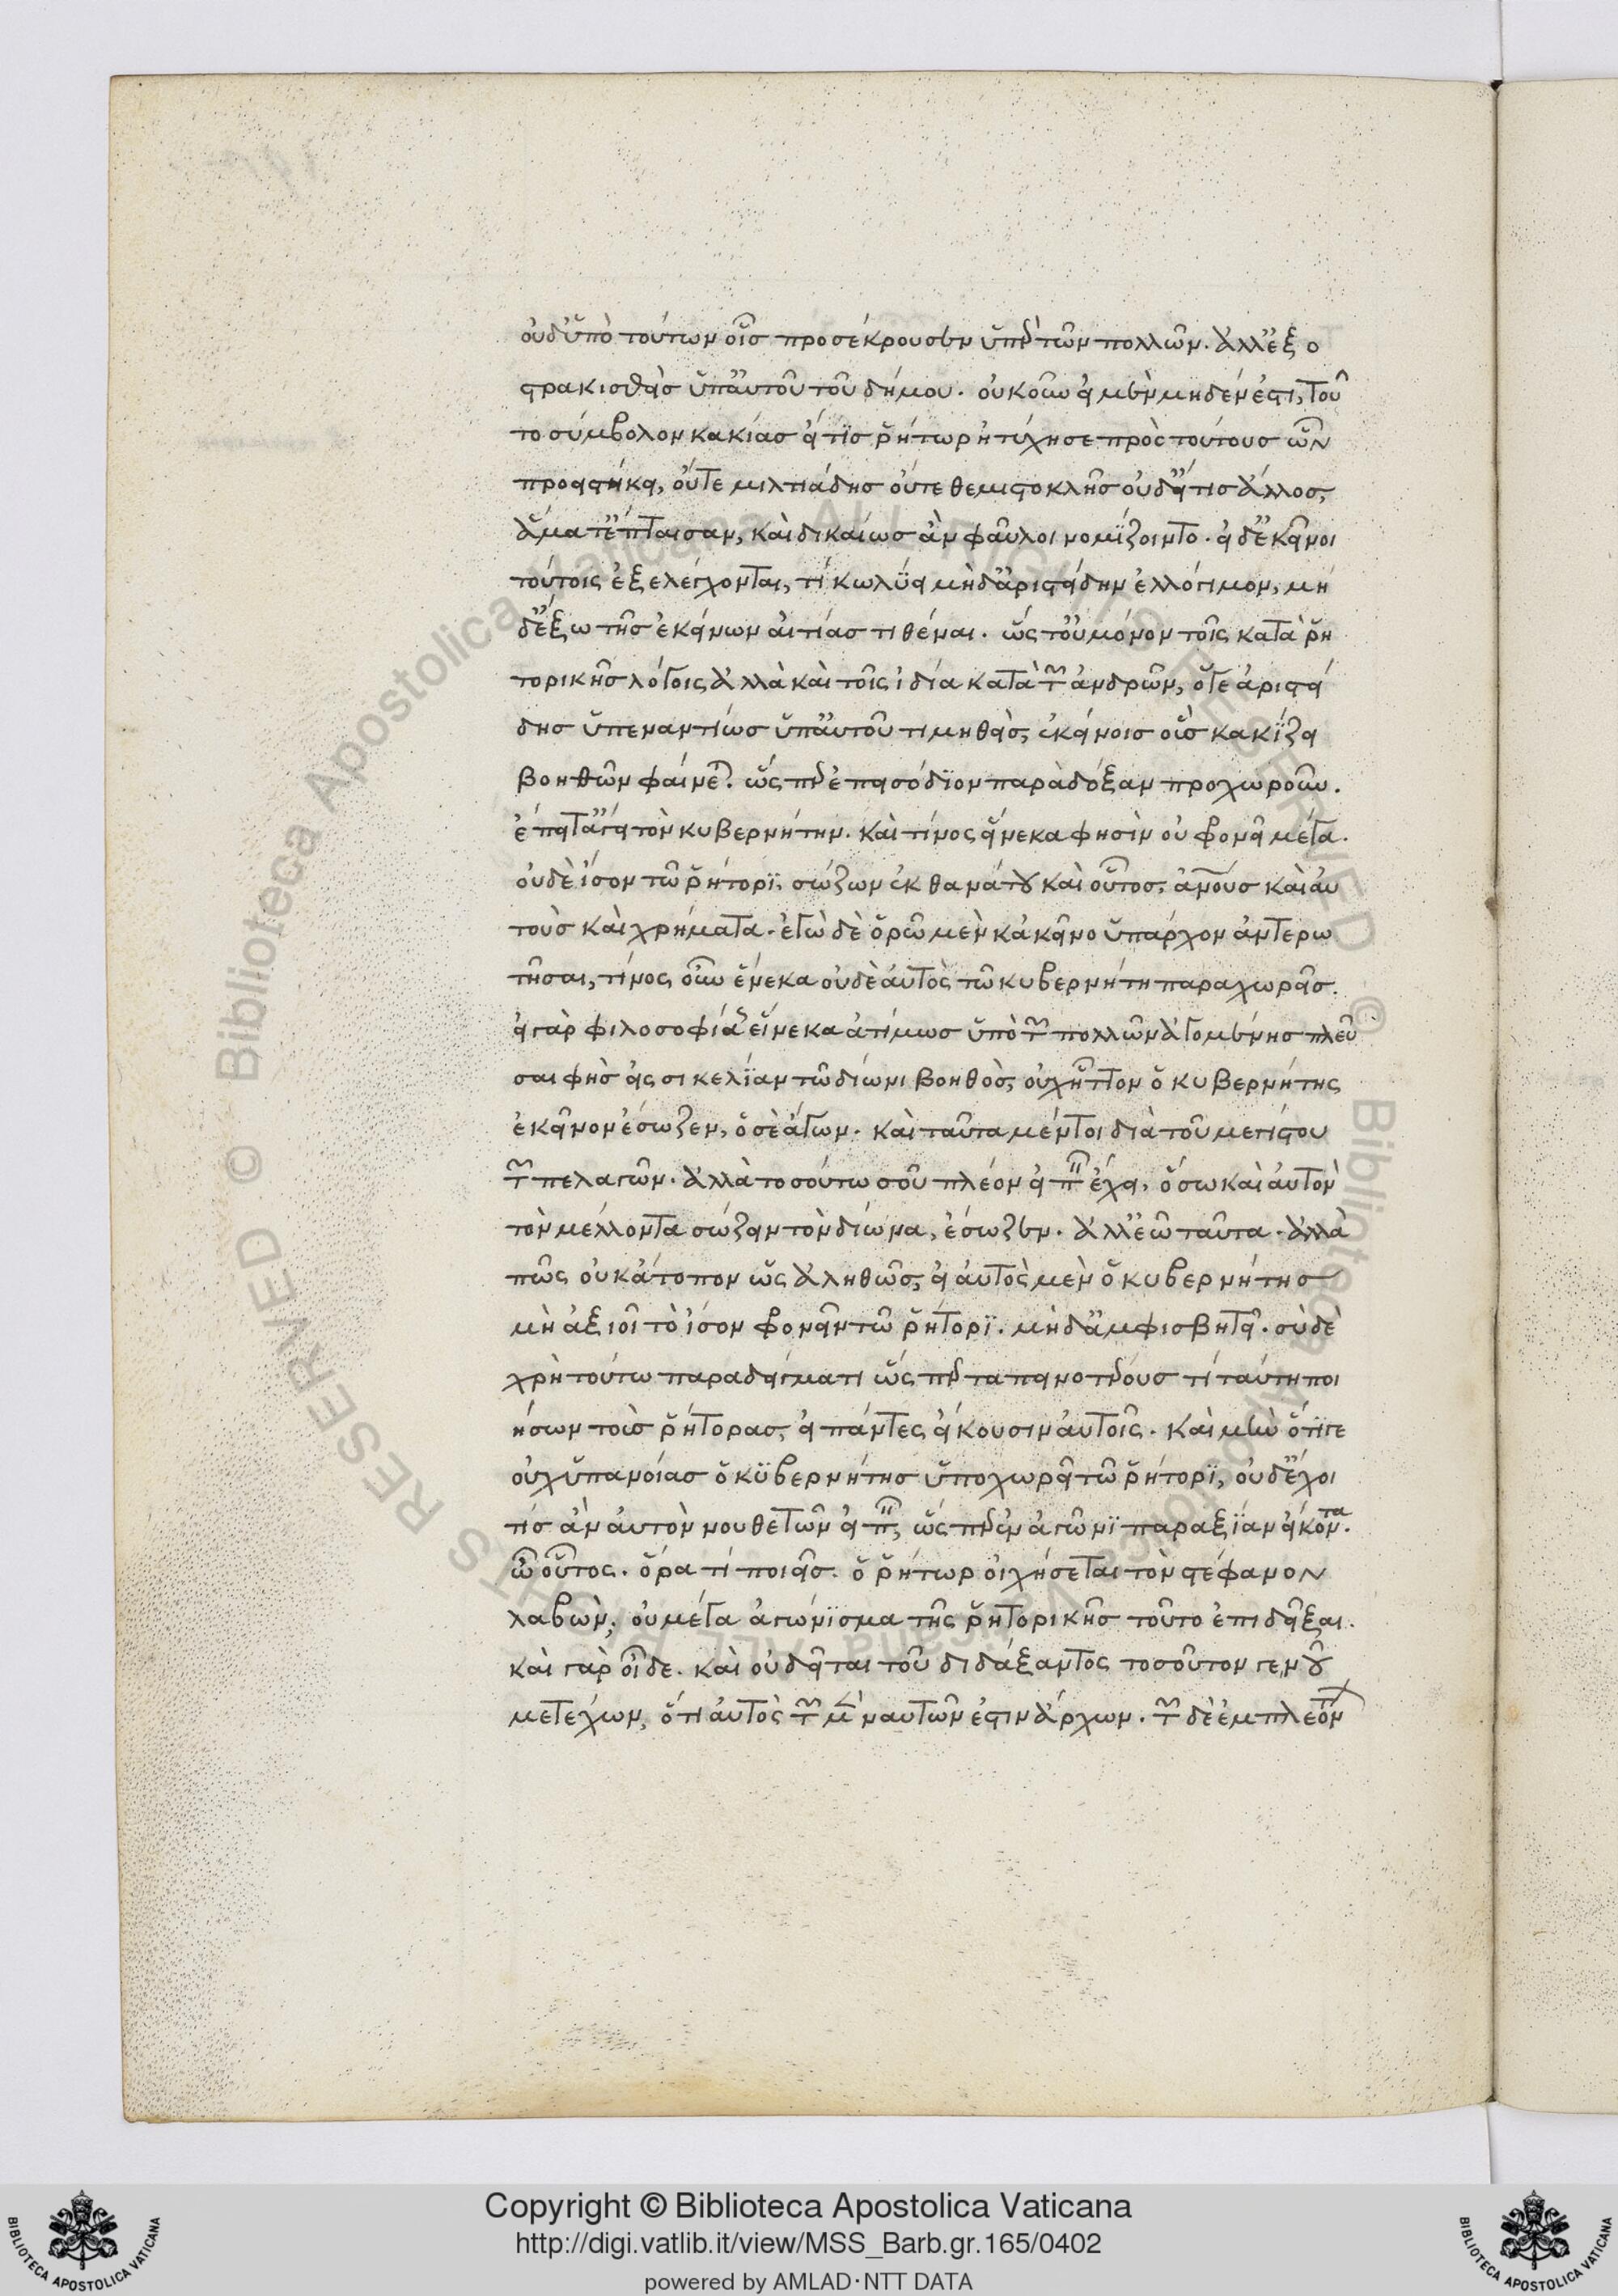 οὐδ' ὑπὸ τούτων οἷς προσέκρουσεν ὑπὲρ τῶν πολλῶν. ἀλλ' ἐξο
στρακισθεὶς ὑπ' αὐτοῦ τοῦ δήμου. οὐκοῦν εἰ μὲν μηδέν ἐστι, τοῦ
το σύμβολον κακίας εἴ τις ῥήτωρ ἠτύχησε πρὸς τούτους ὧν
προστήκει, οὔτε μιλτιάδης οὔτε θεμιστοκλῆς οὐδ' εἴ τις ἄλλος,
ἅμα τ' ἔπταισαν, καὶ δικαίως ἂν φαῦλοι νομίζοιντο. εἰ δ' ἐκεῖνοι
τούτοις ἐξελέγχονται, τί κωλύει μὴδ' ἀριστείδην ἐλλόγιμον, μη
δ' ἔξω τῆς ἐκείνων αἰτίας τιθέναι. ὥστ' οὐ μόνον τοῖς κατὰ ῥη
τορικῆς λόγοις ἀλλὰ καὶ τοῖς ἰδία κατὰ τῶν ἀνδρῶν, ὅτε ἀριστεί
δης ὑπεναντίως ὑπ' αὐτοῦ τιμηθεὶς, ἐκείνοις οὓς κακίζει
βοηθῶν φαίνεται. ὥσπερ ἐπεισόδιον παρὰ δόξαν προχωροῦν.
ἐπεὶ τἄγε τὸν κυβερνήτην. καὶ τίνος εἵνεκα φησὶν οὐ φρονεῖ μέγα.
οὐδὲ ἴσον τῶ ῥήτορι, σώζων ἐκ θανάτου καὶ οὗτος, ἀνθρώπους καὶ αὐ
τοὺς καὶ χρήματα. ἐγὼ δὲ ὁρῶ μὲν κἀκεῖνο ὑπάρχον ἀντερω
τῆσαι, τίνος οὖν ἕνεκα οὐδὲ αὐτὸς τῶ κυβερνήτη παραχωρεῖς.
εἰ γὰρ φιλοσοφίας εἵνεκα ἀτίμως ὑπὸ τῶν πολλῶν ἀγομένης πλεῦ
σαι φὴς εἰς σικελίαν τῶ δίωνι βοηθὸς, οὐχ ἧττον ὁ κυβερνήτης
ἐκεῖνον ἔσωζεν, ὁ σὲ ἄγων. καὶ ταῦτα μέντοι διὰ τοῦ μεγίστου
τῶν πελαγῶν. ἀλλὰ τοσούτω σοῦ πλέον εἰπεῖν ἔχει, ὅσω καὶ αὐτὸν
τὸν μέλλοντα σώζειν τὸν δίωνα, ἔσωζεν. ἀλλ' ἐῶ ταῦτα. ἀλλὰ
πῶς οὐκ ἄτοπον ὡς ἀληθῶς, εἰ αὐτὸς μὲν ὁ κυβερνήτης
μὴ ἀξιοῖ τὸ ἴσον φρονεῖν τῶ ῥήτορι. μὴδ' ἀμφισβητεῖ. σὺ δὲ
χρὴ τούτω παραδείγματι ὥσπερ ταπεινοτέρους τί ταύτη ποι
ήσων τοὺς ῥήτορας, εἰ πάντες εἴκουσιν αὐτοῖς. καὶ μὴν ὅτι γε
οὐχ ὑπ' ἀνοίας ὁ κυβερνήτης ὑποχωρεῖ τῶ ῥήτορι, οὐδ' ἔχοι
τίς ἂν αὐτὸν νουθετῶν εἰπεῖν, ὥσπερ ἐν ἀγῶνι παρ' ἀξίαν εἴκοντα.
ὦ οὗτος. ὅρα τί ποιεῖς. ὁ ῥήτωρ οἰχήσεται τὸν στέφανον
λαβὼν, οὐ μέγα ἀγώνισμα τῆς ῥητορικῆς τοῦτο ἐπιδεῖξαι.
καὶ γὰρ οἶδε. καὶ οὐ δεῖται τοῦ διδάξαντος τοσοῦτον γε νοῦ
μετέχων, ὅτι αὐτὸς τῶν μὲν ναυτῶν ἐστιν ἄρχων. τῶν δὲ ἐμπλεόντων
Copyright © Biblioteca Apostolica Vaticana
http://digi.vatlib.it/view/MSS_Barb.gr.165/0402
powered by AMLAD·NTT DATA